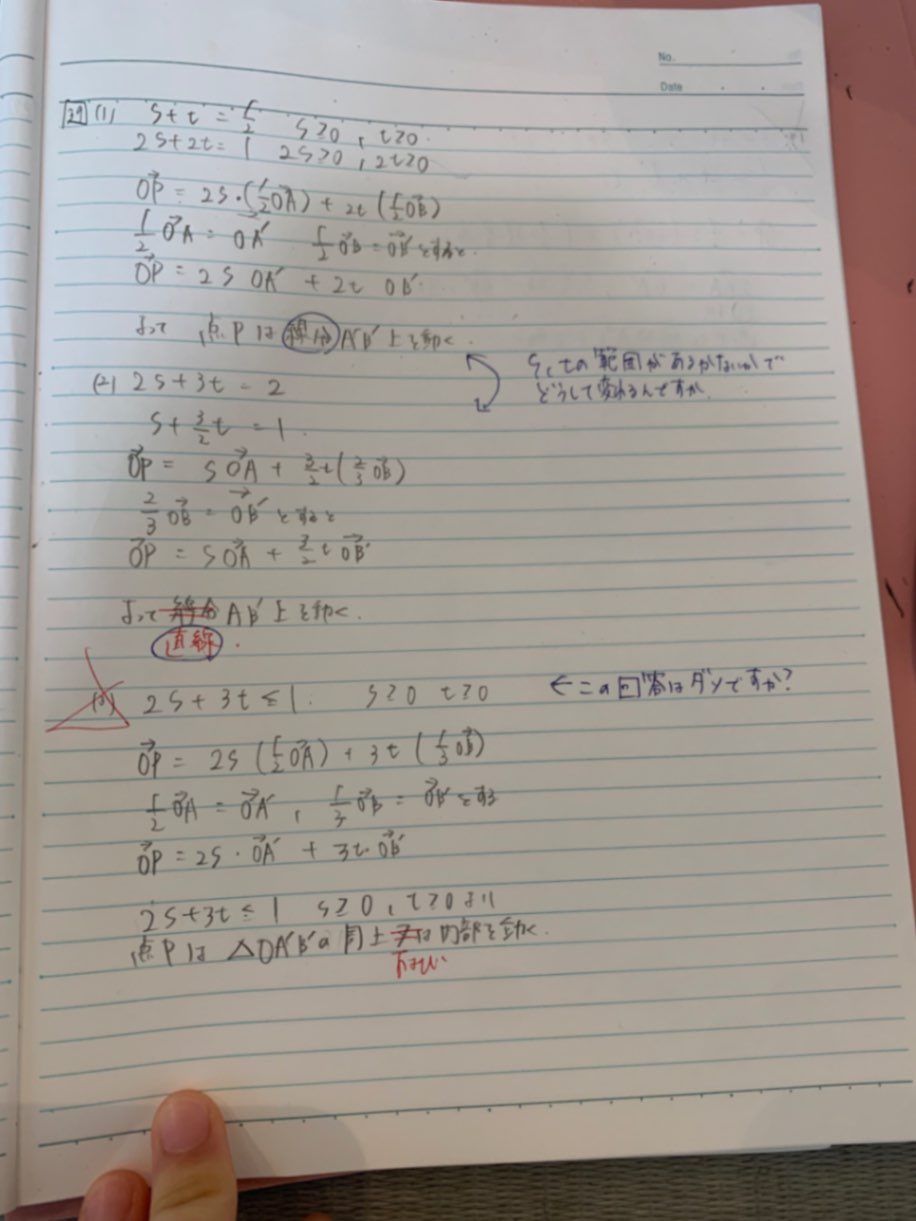 No.
Date
29 (1) s+t = 1/2 s≧0, t≧0.
2s+2t=1 2s≧0, 2t≧0
OP→ = 2s・(1/2 OA→) + 2t (1/2 OB→)
1/2 OA→ = OA'→ 1/2 OB→ = OB'→ とすると.
OP→ = 2s OA' + 2t OB'.
よって 点Pは 線分 A'B'上を動く.
s,tの範囲があるかないかで
どうして変わるんですか.
(2) 2s+3t = 2
s+3/2t = 1.
OP→ = sOA→ + 3/2t(2/3 OB→)
2/3 OB→ = OB'→ とすると
OP→ = sOA→ + 3/2 t OB'→
よって 線分 AB'上を動く.
直線.
(3) 2s+3t≦1. s≧0 t≧0 ←この回答はダメですか?
OP→ = 2s (1/2 OA→) + 3t (1/3 OB→)
1/2 OA→ = OA'→, 1/3 OB→ = OB'→ とする
OP→ = 2s・OA'→ + 3t・OB'→
2s+3t≦1 s≧0, t≧0 より
点Pは △OA'B'の周上 又は 内部を動く.